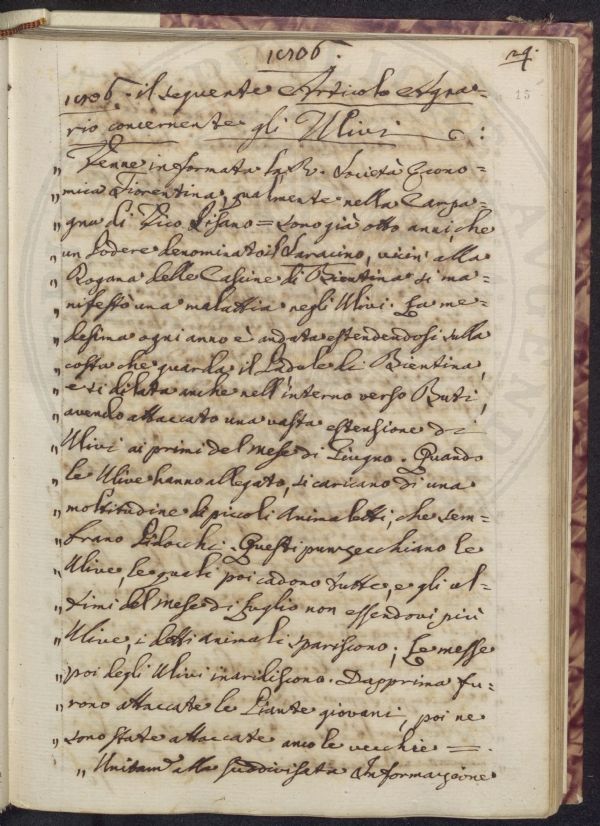 1806.
24.
15
1806. il seguente Articolo Agra=
rio concernente gli Ulivi :
„ Venne informata la R. Società Econo=
„ mica Fiorentina, qualmente nella Campa=
„ gna di Vico Pisano = sono già otto anni, che
„ un Podere denominato il Saracino, vicin' alla
„ Dogana delle Cascine di Bientina si ma=
„ nifestò una malattia negli Ulivi. La me=
„ desima ogni anno è andata estendendosi sulla
„ costa che guarda il Padule di Bientina,
„ e si dilata anche nell'interno verso Buti,
„ avendo attaccato una vasta estensione di
„ Ulivi ai primi del Mese di Giugno. Quando
„ le Ulive hanno allegato, si caricano di una
„ moltitudine di piccoli Animaletti, che sem=
„ brano Pidocchi. Questi punzecchiano le
„ Ulive, le quali poi cadono tutte, e gli ul=
„ timi del Mese di Luglio non essendovi più
„ Ulive, i detti animali spariscono; Le messe
„ poi degli Ulivi inaridiscono. Dapprima fu=
„ rono attaccate le Piante giovani, poi ne
„ sono state attaccate anco le vecchie =.
„ Unitam.e alla suddivisata Informazione